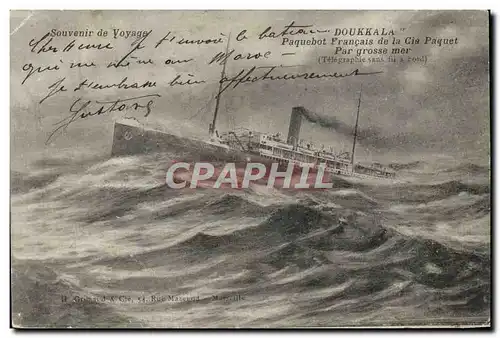 Souvenir de Voyage
"DOUKKALA"
Paquebot Français de la Cie Paquet
Par grosse mer
(Télégraphie sans fil à bord)
Je t'envoie le bateau
qui me mène au Maroc
Je t'embrasse bien affectueusement
Gustave
CPAPHIL
& Cie, Rue - Marseille